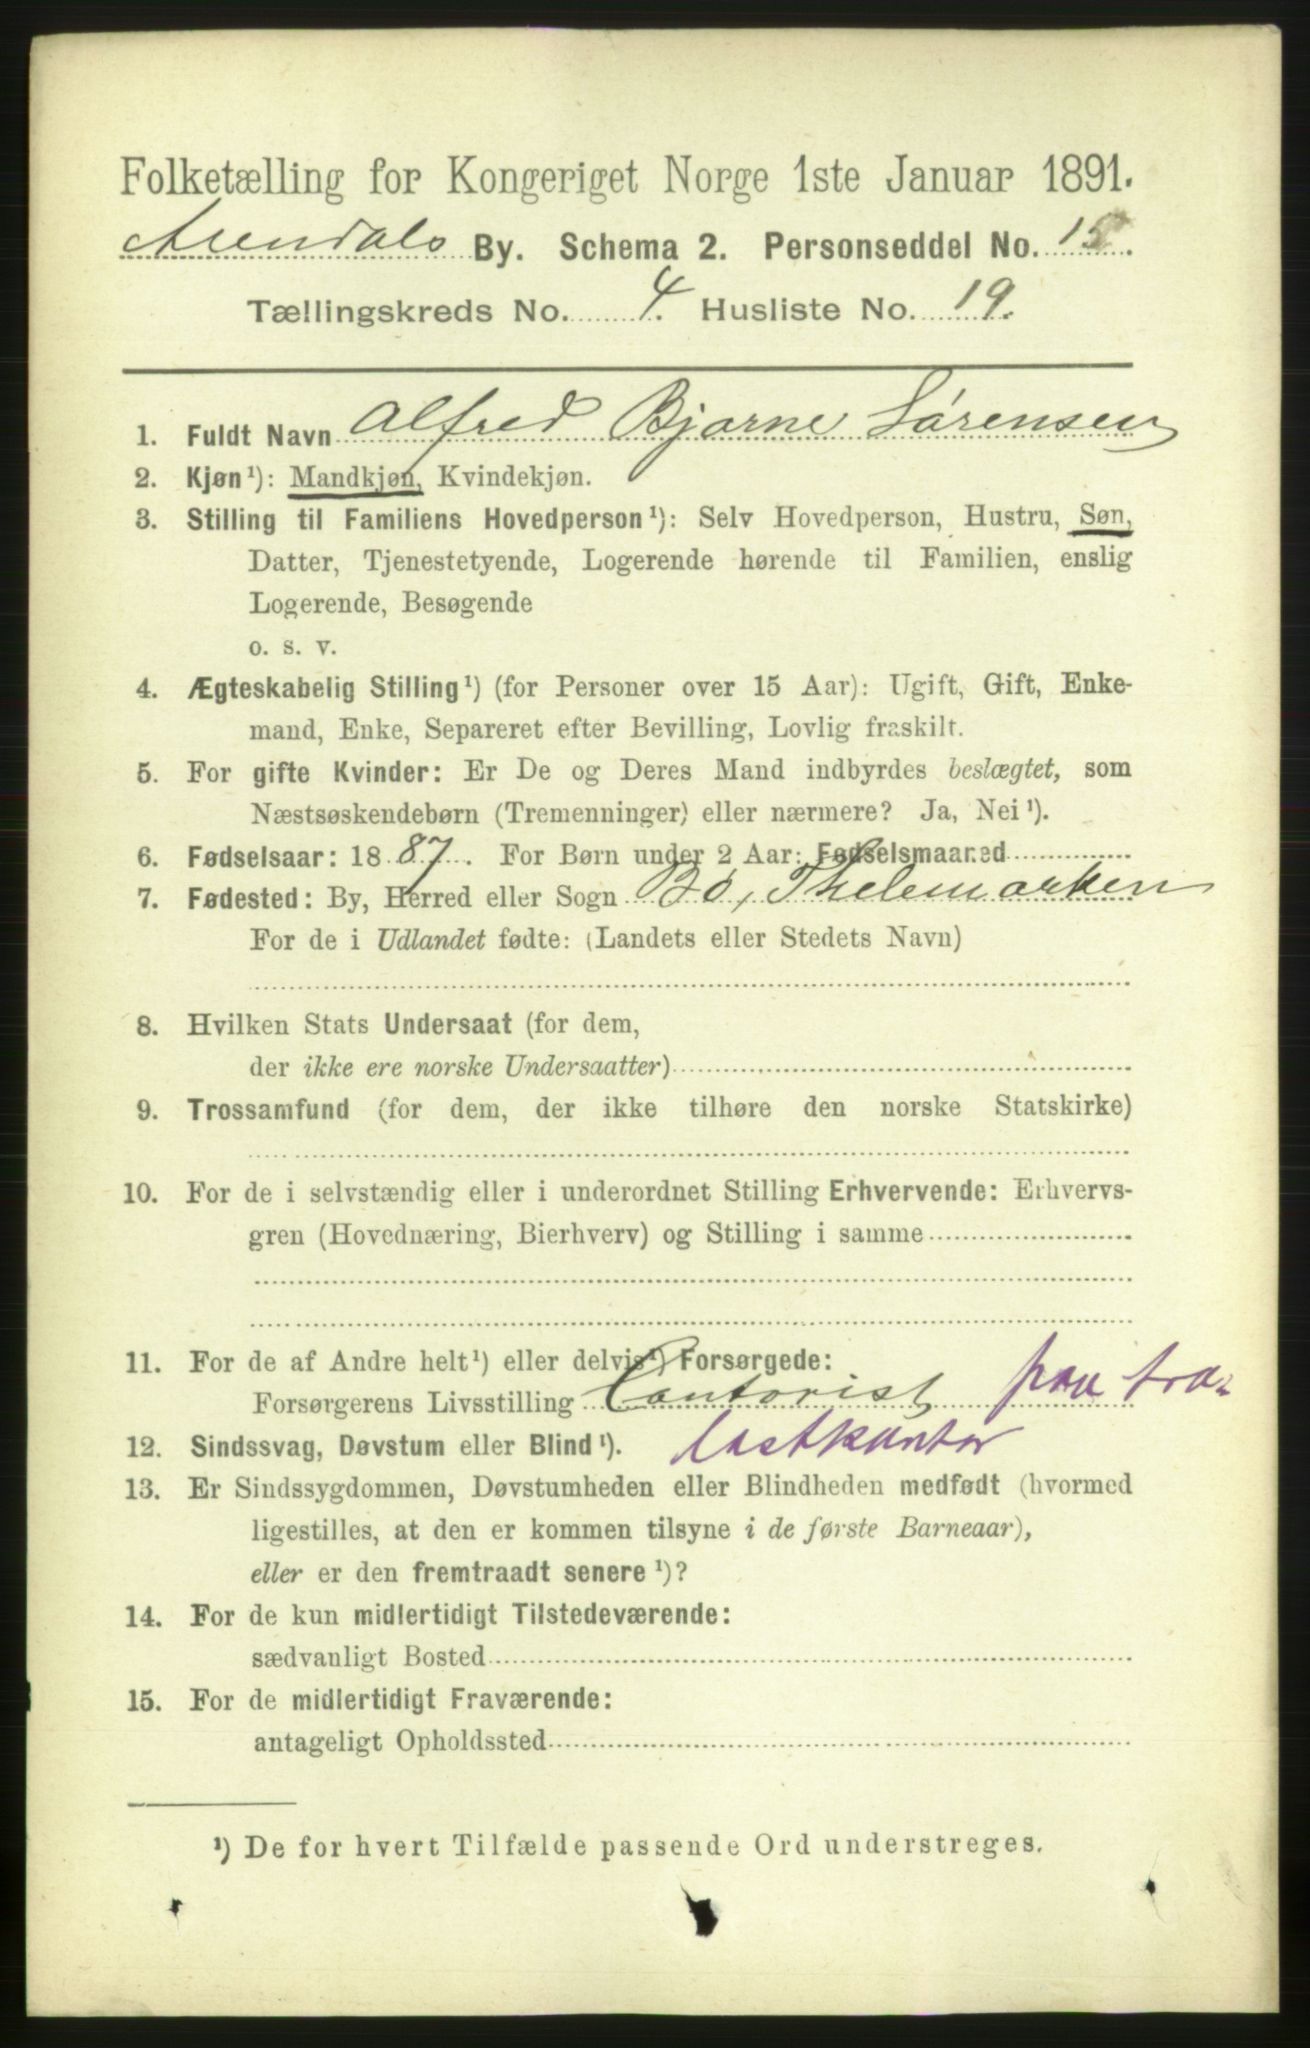 Folketælling for Kongeriget Norge 1ste Januar 1891.
Arendals By. Schema 2. Personseddel No. 15.
Tællingskreds No. 4. Husliste No. 19.
1. Fuldt Navn Alfred Bjarne Sørensen
2. Kjøn¹): Mandkjøn, Kvindekjøn.
3. Stilling til Familiens Hovedperson¹): Selv Hovedperson, Hustru, Søn,
Datter, Tjenestetyende, Logerende hørende til Familien, enslig
Logerende, Besøgende
o. s. v.
4. Ægteskabelig Stilling¹) (for Personer over 15 Aar): Ugift, Gift, Enke-
mand, Enke, Separeret efter Bevilling, Lovlig fraskilt.
5. For gifte Kvinder: Er De og Deres Mand indbyrdes beslægtet, som
Næstsøskendebørn (Tremenninger) eller nærmere? Ja, Nei¹).
6. Fødselsaar: 1887. For Børn under 2 Aar: Fødselsmaaned
7. Fødested: By, Herred eller Sogn Bø, Thelemarken
For de i Udlandet fødte: (Landets eller Stedets Navn)
8. Hvilken Stats Undersaat (for dem,
der ikke ere norske Undersaatter)
9. Trossamfund (for dem, der ikke tilhøre den norske Statskirke)
10. For de i selvstændig eller i underordnet Stilling Erhvervende: Erhvervs-
gren (Hovednæring, Bierhverv) og Stilling i samme
11. For de af Andre helt¹) eller delvis¹) Forsørgede:
Forsørgerens Livsstilling Contorist paa
12. Sindssvag, Døvstum eller Blind¹).
13. Er Sindssygdommen, Døvstumheden eller Blindheden medfødt (hvormed
ligestilles, at den er kommen tilsyne i de første Barneaar),
eller er den fremtraadt senere¹)?
14. For de kun midlertidigt Tilstedeværende:
sædvanligt Bosted
15. For de midlertidigt Fraværende:
antageligt Opholdssted
¹) De for hvert Tilfælde passende Ord understreges.